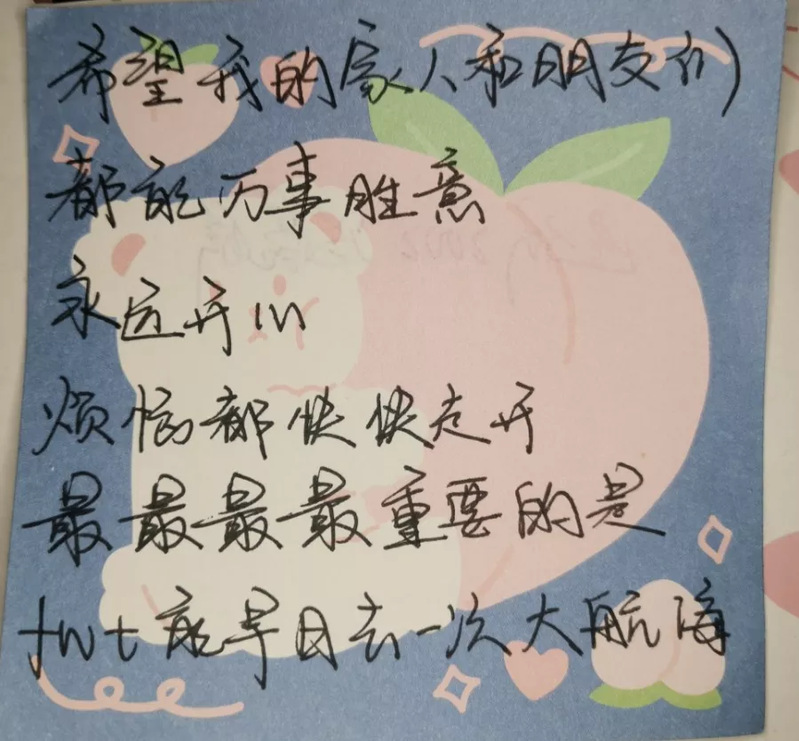 希望我的家人和朋友们
都能万事胜意
永远开心
烦恼都快快走开
最最最最重要的是
twt能早日去一次大航海